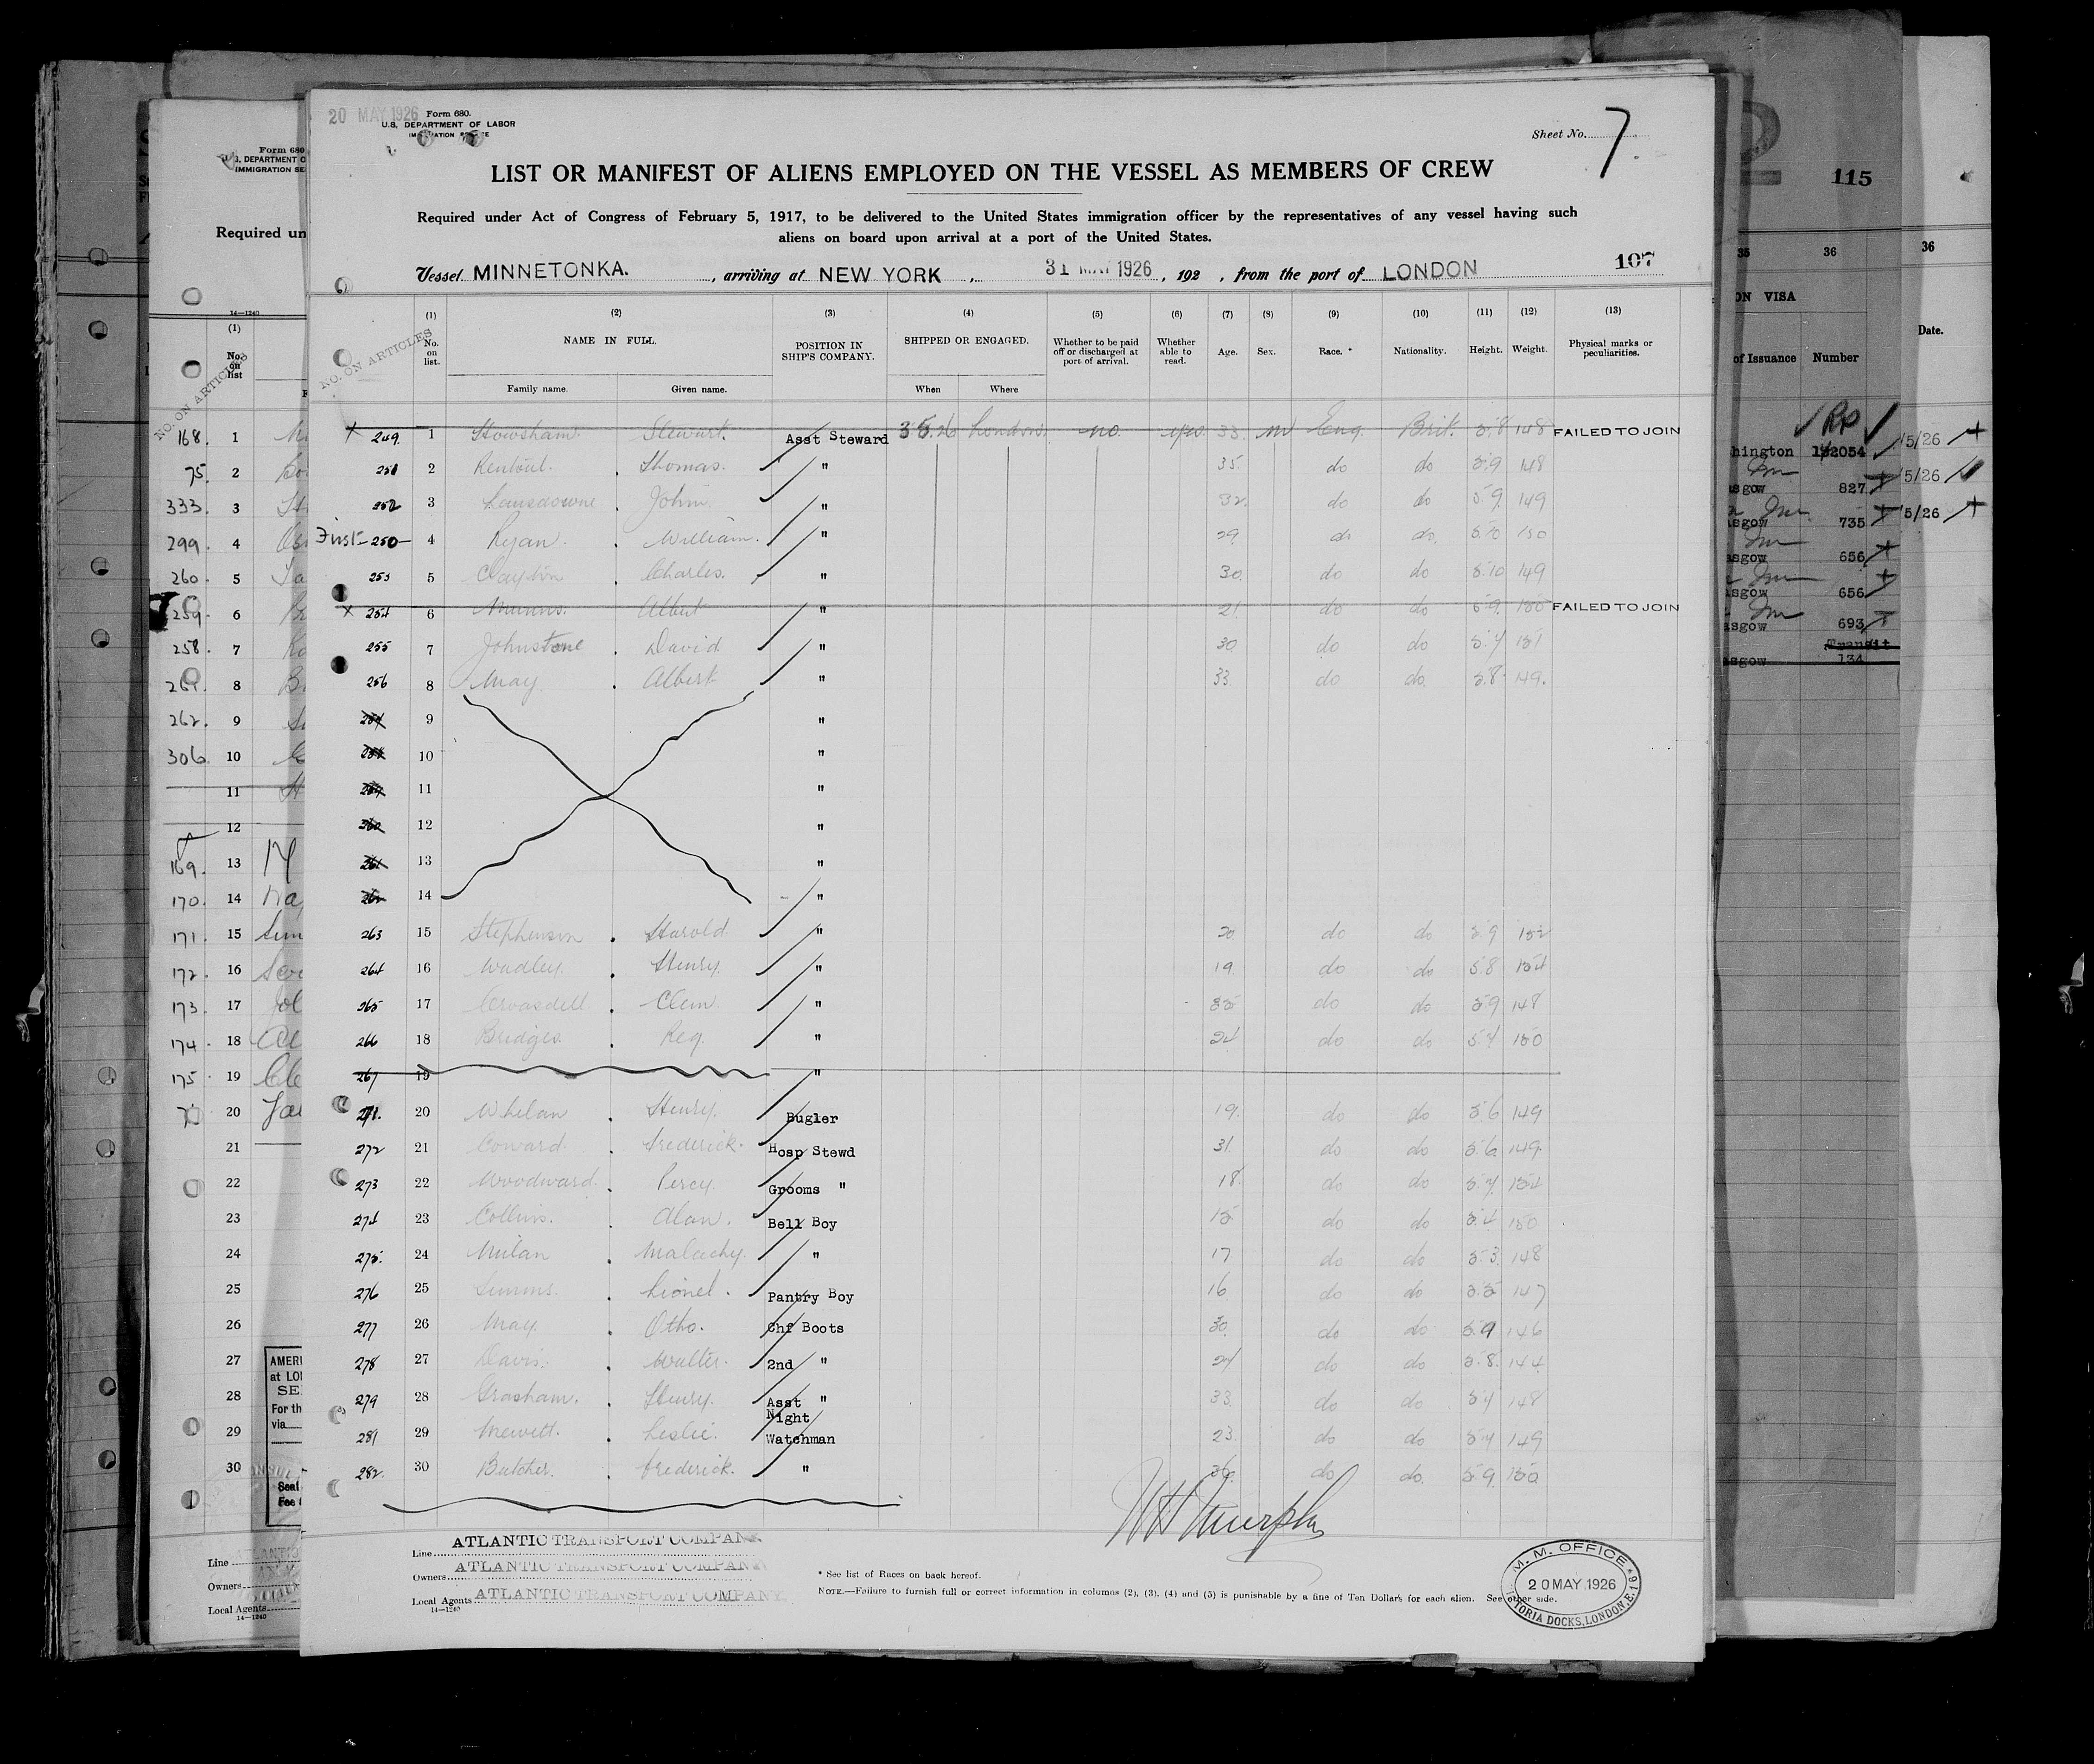 20 MAY 1926
Form 680.
U.S. DEPARTMENT OF LABOR
Sheet No. 7.
LIST OR MANIFEST OF ALIENS EMPLOYED ON THE VESSEL AS MEMBERS OF CREW
Required under Act of Congress of February 5, 1917, to be delivered to the United States immigration officer by the representatives of any vessel having such
aliens on board upon arrival at a port of the United States.
Vessel MINNETONKA. , arriving at NEW YORK , 31 MAY 1926 , 192 , from the port of LONDON 107
NO. ON ARTICLES
(1) No. on list. (2) NAME IN FULL. Family name. Given name. (3) POSITION IN SHIP'S COMPANY. (4) SHIPPED OR ENGAGED. When Where (5) Whether to be paid off or discharged at port of arrival. (6) Whether able to read. (7) Age. (8) Sex. (9) Race. * (10) Nationality. (11) Height. (12) Weight. (13) Physical marks or peculiarities.
249. 1 Stewart. Asst Steward London no. yes 33 m Eng. Brit. 5.8 148 FAILED TO JOIN
251 2 Thomas. " 35 do do 5.9 148
252 3 Lansdowne John. " 32 do do 5.9 149
First 250 4 Ryan. William. " 29 do do. 5.10 150
253 5 Clayton Charles. " 30 do do 5.10 149
X 254 6 Albert " 21 do do 5.9 150 FAILED TO JOIN
255 7 Johnstone David " 30 do do 5.7 151
256 8 May Albert " 33 do do. 5.8 149.
9 "
10 "
11 "
12 "
261 13 "
14 "
263 15 Stephenson Harold " 20 do do 5.9 152
264 16 Wadley. Henry. " 19 do do 5.8 154
265 17 Croasdell Clem " do do 5.9 148
266 18 Bridges Reg. " 24 do do 5.7 150
267 19 "
271. 20 Whelan Henry. Bugler 19. do do 5.6 149
272 21 Coward Frederick. Hosp Stewd 31. do do 5.6 149.
273 22 Woodward. Percy. Grooms " 18. do do 5.7 154
274 23 Collins. Alan. Bell Boy 15 do do 5.4 150
275. 24 Milan Malachy. " 17 do do 5.3 148
276 25 Simms. Lionel. Pantry Boy 16 do do 5.5 147
277 26 May. Otho. Chf Boots 30. do do 5.9 146
278 27 Davis. Walter. 2nd " do do 5.8. 144
279 28 Grasham. Henry. Asst " 33 do do 5.7 148
281 29 Mewett. Leslie. Night Watchman 23. do do 5.7 149
282. 30 Butcher. Frederick. " 36. do do. 5.9 150
W H Murphy
Line ATLANTIC TRANSPORT COMPANY
Owners ATLANTIC TRANSPORT COMPANY
Local Agents ATLANTIC TRANSPORT COMPANY
14—1240
* See list of Races on back hereof.
NOTE.—Failure to furnish full or correct information in columns (2), (3), (4) and (5) is punishable by a fine of Ten Dollars for each alien. See other side.
M. M. OFFICE
20 MAY 1926
VICTORIA DOCKS, LONDON, E.16
Form 680
U.S. DEPARTMENT O
IMMIGRATION SE
Required un
14—1240
NO. ON ARTICLES
(1)
No. on list
168. 1
75. 2
333. 3
299. 4
260. 5
259. 6
258. 7
261. 8
262. 9
306 10
11
12
169. 13
170. 14
171. 15
172. 16
173. 17
174. 18
175. 19
20
21
22
23
24
25
26
27
28
29
30
AMERI
at LO
SE
For th
via
Seal
Fee
Line
Owners
Local Agents
14—1240
2
115
35 36 36
ON VISA
of Issuance Number Date.
hington 132054 5/26
sgow 827 5/26
sgow 735 5/26
sgow 656
sgow 656
sgow 693
Transit
sgow 134